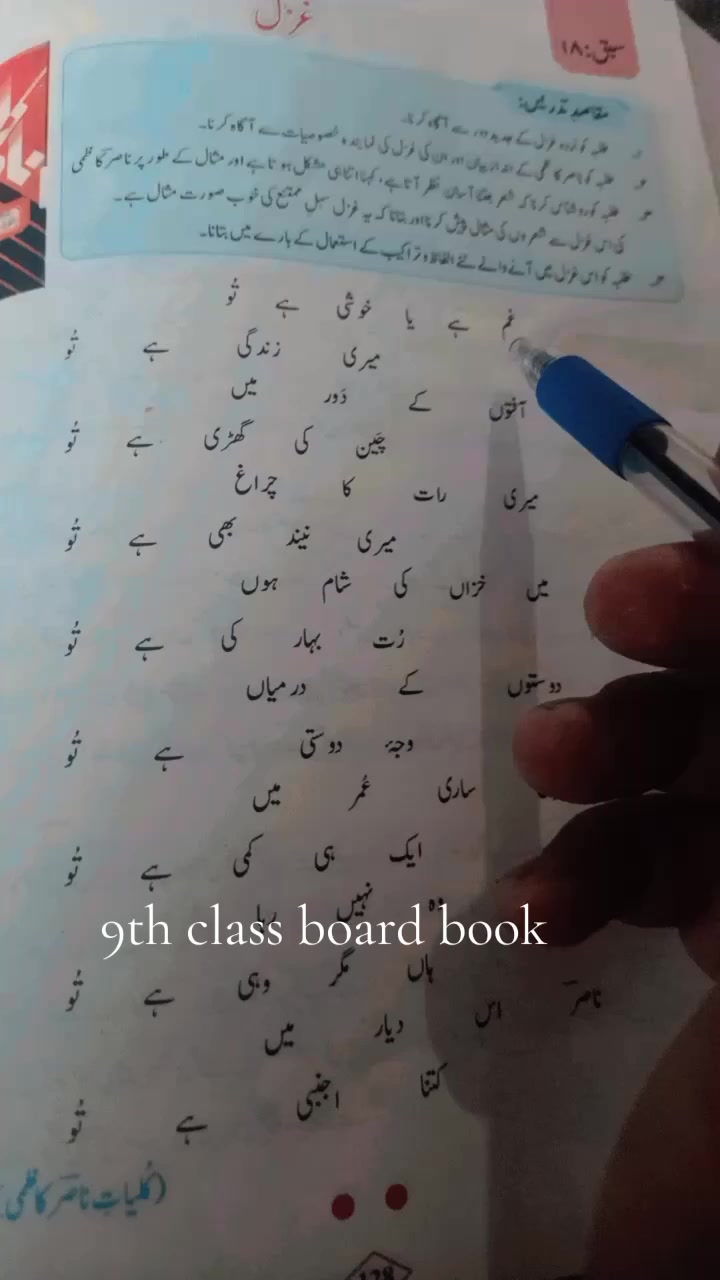 غزل
سبق: ۱۸
مقاصدِ تدریس:
طلبہ کو اردو غزل کے جدید دور سے آگاہ کرنا۔
طلبہ کو ناصر کاظمی کے اندازِ بیان اور ان کی غزل کی نمایندہ خصوصیات سے آگاہ کرنا۔
طلبہ کو روشناس کرنا کہ شعر جتنا آسان نظر آتا ہے، کہنا اتنا ہی مشکل ہوتا ہے اور مثال کے طور پر ناصر کاظمی
کی اس غزل سے شعروں کی مثال پیش کرنا اور بتانا کہ یہ غزل سہلِ ممتنع کی خوب صورت مثال ہے۔
طلبہ کو اس غزل میں آنے والے نئے الفاظ و تراکیب کے استعمال کے بارے میں بتانا۔
غم ہے یا خوشی ہے تُو
میری زندگی ہے تُو
آفتوں کے دَور میں
چَین کی گھڑی ہے تُو
میری رات کا چراغ
میری نیند بھی ہے تُو
میں خزاں کی شام ہوں
رُت بہار کی ہے تُو
دوستوں کے درمیاں
وجۂ دوستی ہے تُو
ساری عُمر میں
ایک ہی کمی ہے تُو
وہ نہیں رہا
ہاں مگر وہی ہے تُو
ناصرؔ اس دیار میں
کتنا اجنبی ہے تُو
(کُلیاتِ ناصرؔ کاظمی
128
9th class board book